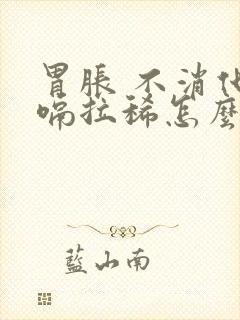 胃脹 不消化
嗝拉稀怎麼
藍山南